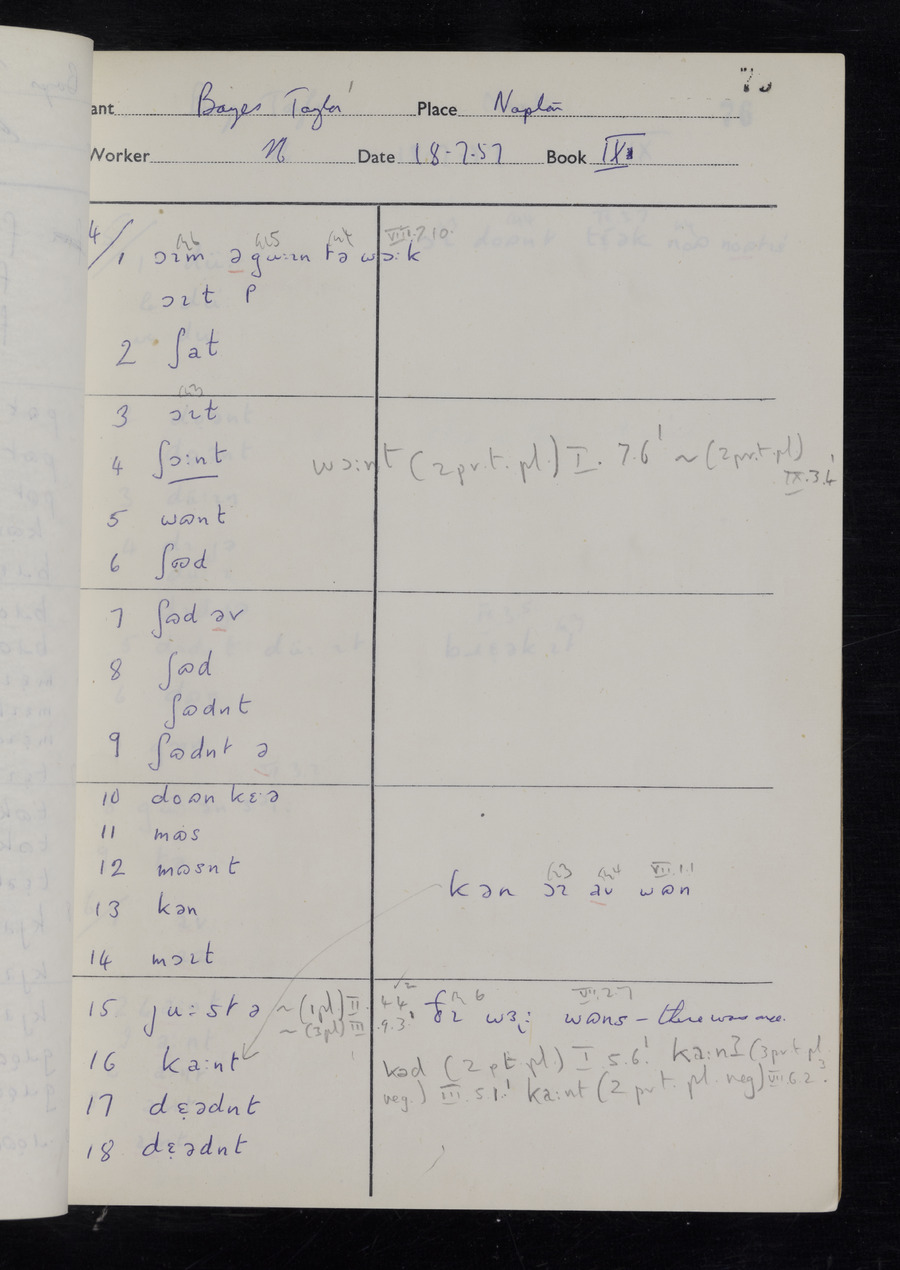 ant Bayes Taylor Place Napton
Worker N Date 18-7-57 Book IX
4/
1 ɔɪm ə gu:ɪn tə wɔ:k VIII.7.10.
ɔɪt
2 ʃat
3 ɔɪt
4 ʃɔ:nt wɔ:nt (2 pr.t. pl.) I. 7.6' ~ (2 pr.t. pl)
IX.3.4'
5 wɷnt
6 ʃɷd
7 ʃɷd əv
8 ʃɷd
ʃɷdnt
9 ʃɷdnt ə
10 doɷn kɛə
11 mɷs
12 mɷsnt
kən ɔɪ av wɷn VII.1.1
13 kən
14 mɔɪt
15 ju:st ə ~ (1 pl) II. 4.4
~ (3 pl) III .9.3'
ðɪ wɜ: wɷns – there was one. VII.2.7
16 ka:nt
kɷd (2 pt. pl.) I 5.6! ka:nʔ (3 pr.t. pl.
neg.) III.5.1! ka:nt (2 pr.t. pl. neg) VII.6.2.
17 dɛədnt
18 dɛədnt